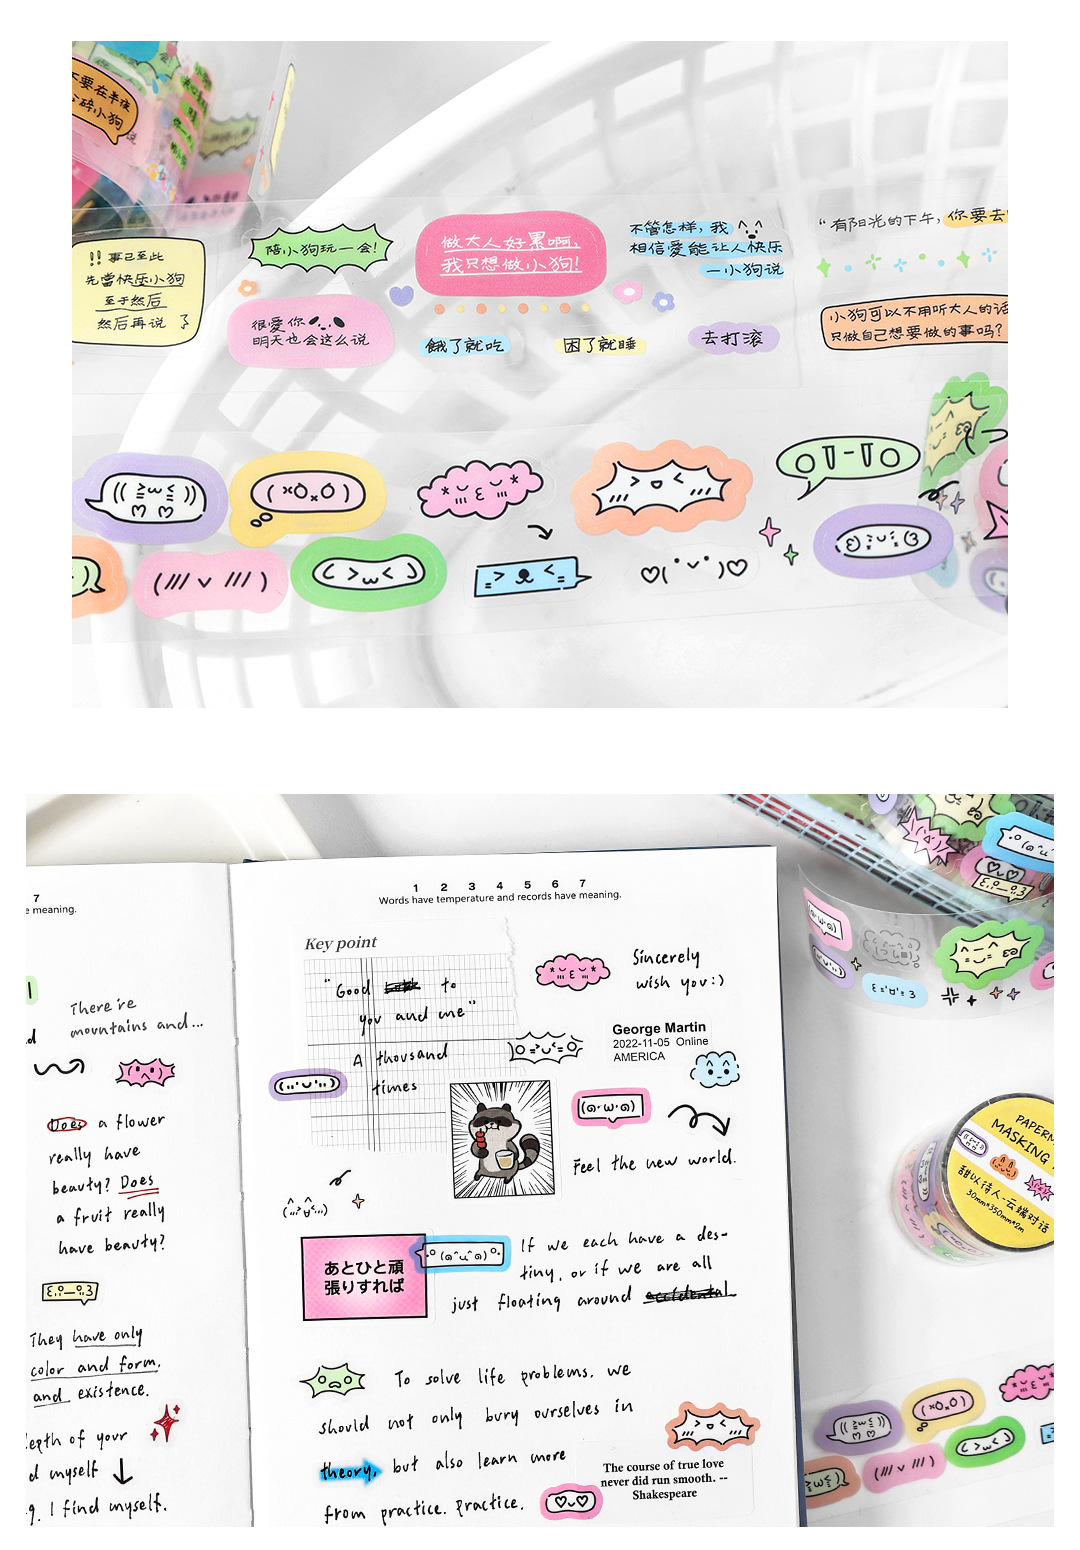 不要在半夜
小狗
!! 事已至此
先當快乐小狗
至于然后
然后再说
陪小狗玩一会!
很爱你
明天也会这么说
做大人好累啊,
我只想做小狗!
餓了就吃
困了就睡
去打滚
不管怎样,我
相信爱能让人快乐
—小狗说
“有阳光的下午,你要去
小狗可以不用听大人的话
只做自己想要做的事吗?
7
meaning.
There're
mountains and...
Does a flower
really have
beauty? Does
a fruit really
have beauty?
They have only
color and form.
and existence.
depth of your
myself
I find myself.
1 2 3 4 5 6 7
Words have temperature and records have meaning.
Key point
"Good to
you and me"
A thousand
times
Sincerely
wish you:)
George Martin
2022-11-05 Online
AMERICA
Feel the new world.
あとひと頑
張りすれば
If we each have a des-
tiny, or if we are all
just floating around accidental
To solve life problems. we
should not only bury ourselves in
theory, but also learn more
from practice. Practice.
The course of true love
never did run smooth. --
Shakespeare
PAPERM
MASKING
甜以待人-云端对话
30mm*350mm*2m